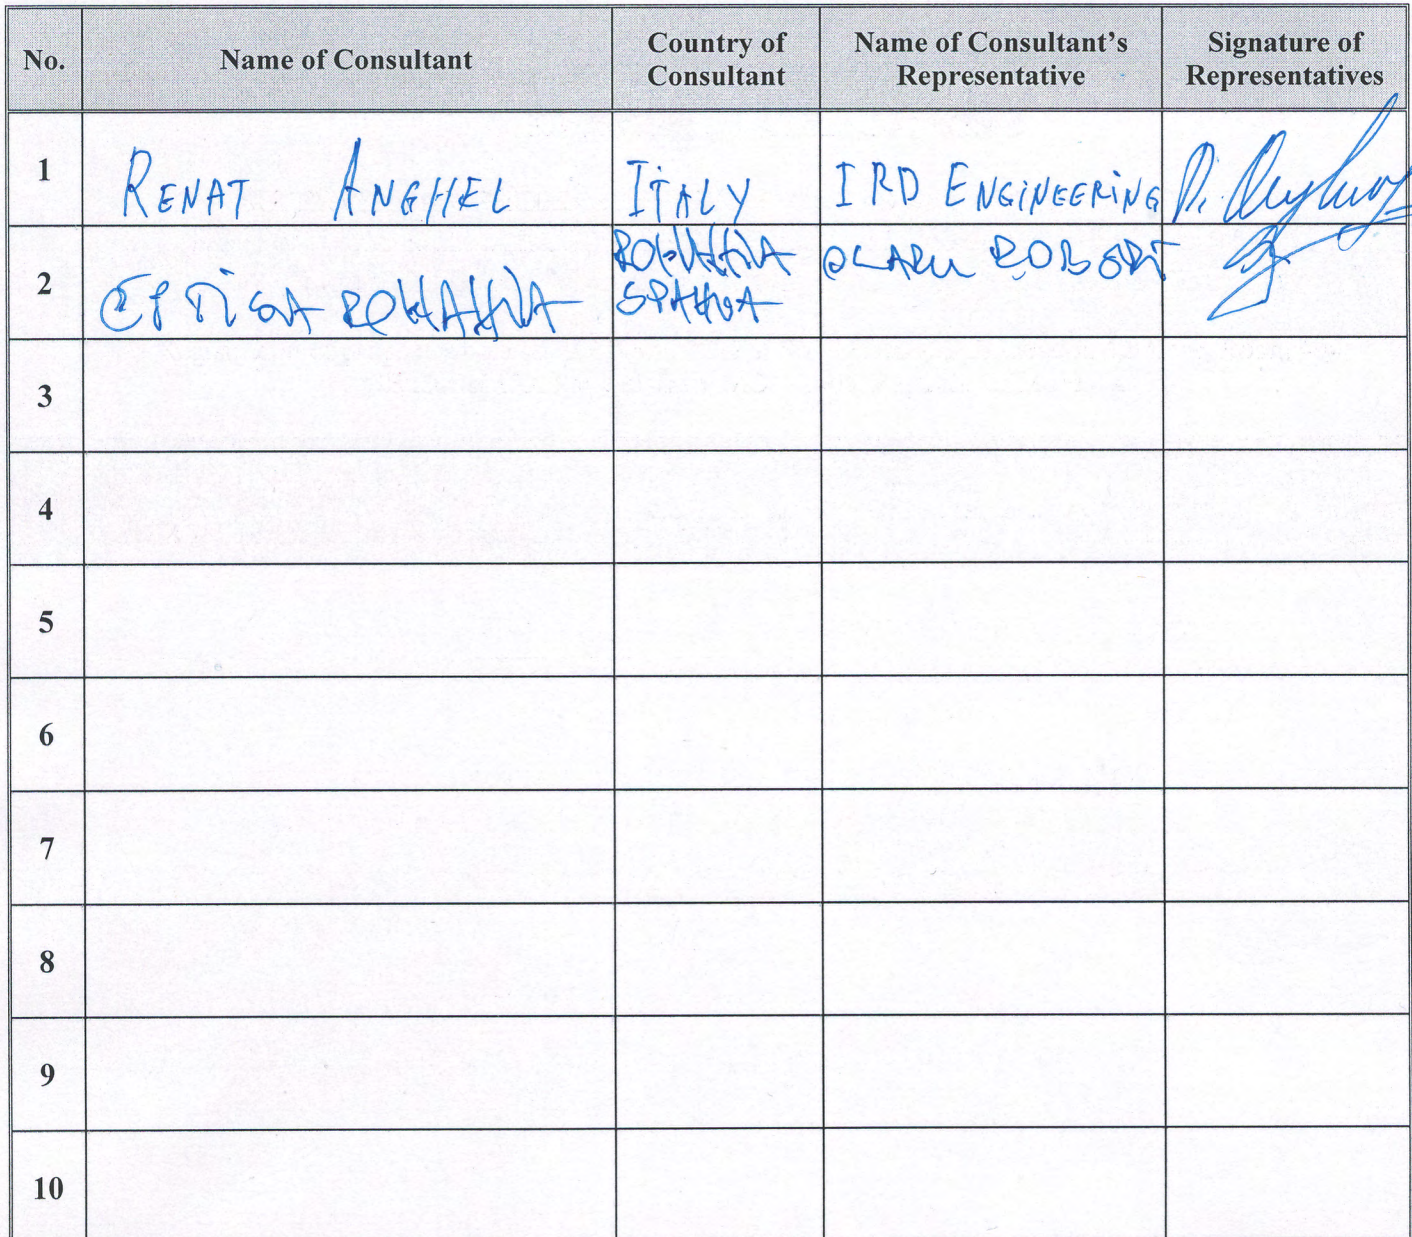 No. Name of Consultant Country of Consultant Name of Consultant's Representative Signature of Representatives
1 RENAT ANGHEL ITALY IRD ENGINEERING
2 EPTISA ROMANIA ROMANIA SPANIA OLARU ROBERT
3
4
5
6
7
8
9
10